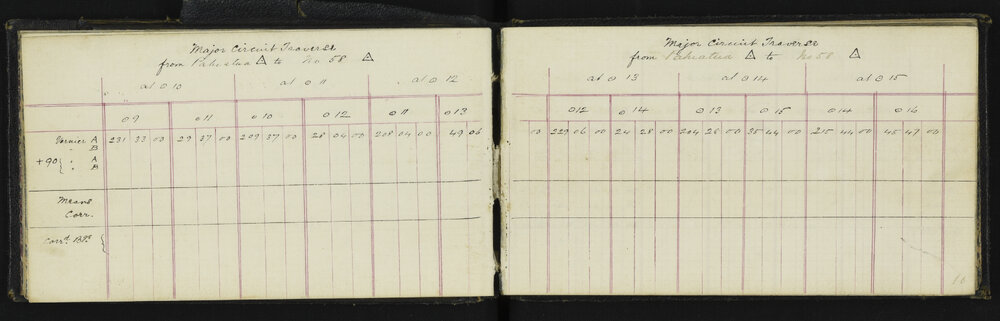 Major Circuit Traverse
from Pahiatua △ to No 58 △
at ⊙ 10 at ⊙ 11 at ⊙ 12
⊙9 ⊙11 ⊙10 ⊙12 ⊙11 ⊙13
Vernier A 231 33 00 29 37 00 209 37 00 28 04 00 208 04 00 49 06
" B
+90 { " A
" B
Means
Corr.
Corrd. Brgs {
Major Circuit Traverse
from Pahiatua △ to No 58 △
at ⊙ 13 at ⊙ 14 at ⊙ 15
⊙12 ⊙14 ⊙13 ⊙15 ⊙14 ⊙16
00 229 06 00 24 28 00 204 28 00 35 44 00 215 44 00 45 47 00
16